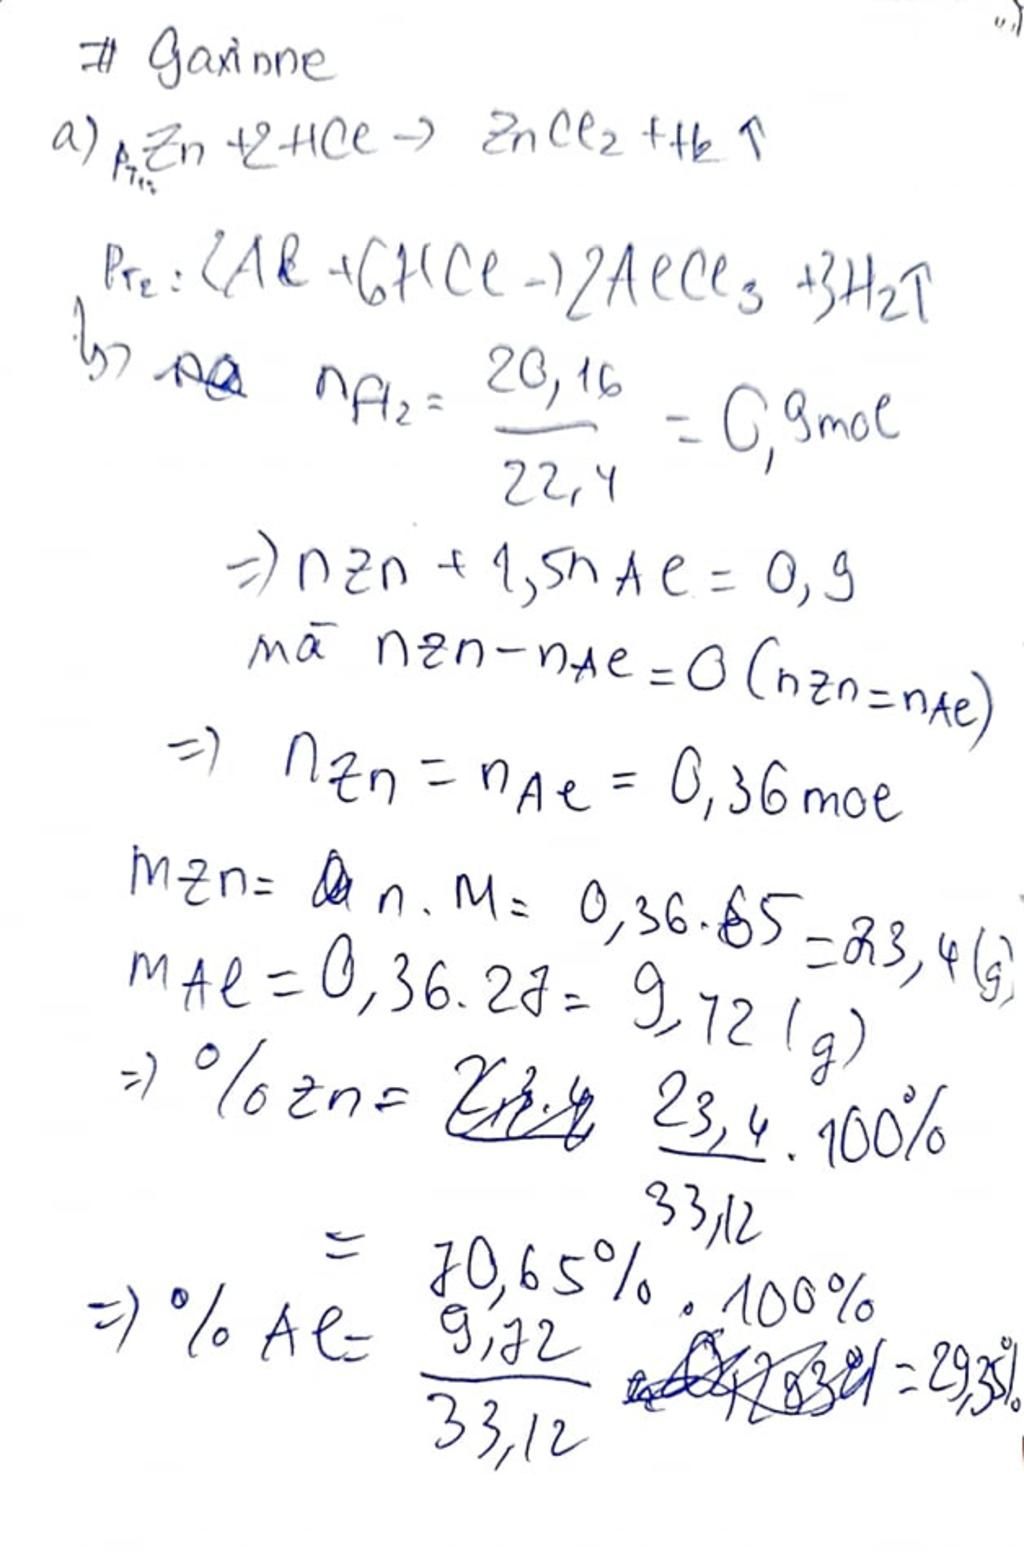 # Gaxinne
a) Zn + 2HCl → ZnCl2 + H2 ↑
PT2: 2Al + 6HCl → 2AlCl3 + 3H2↑
b) nH2 = 20,16 / 22,4 = 0,9 mol
=) nZn + 1,5n Al = 0,9
mà nZn - nAl = 0 (nZn = nAl)
=) nZn = nAl = 0,36 mol
mZn = n . M = 0,36 . 65 = 23,4 (g)
mAl = 0,36 . 27 = 9,72 (g)
=) % Zn = 23,4 / 33,12 . 100%
= 70,65%
=) % Al = 9,72 / 33,12 . 100% = 29,35%